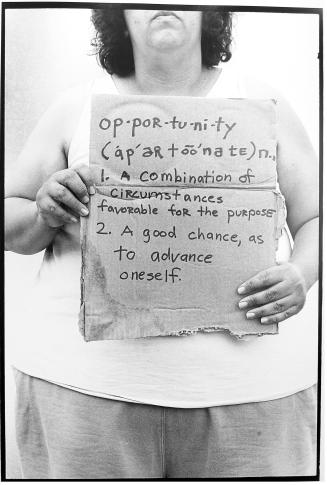 op-por-tu-ni-ty
(áp'ər tōō'na tE) n.,
1. A combination of
circumstances
favorable for the purpose
2. A good chance, as
to advance
oneself.